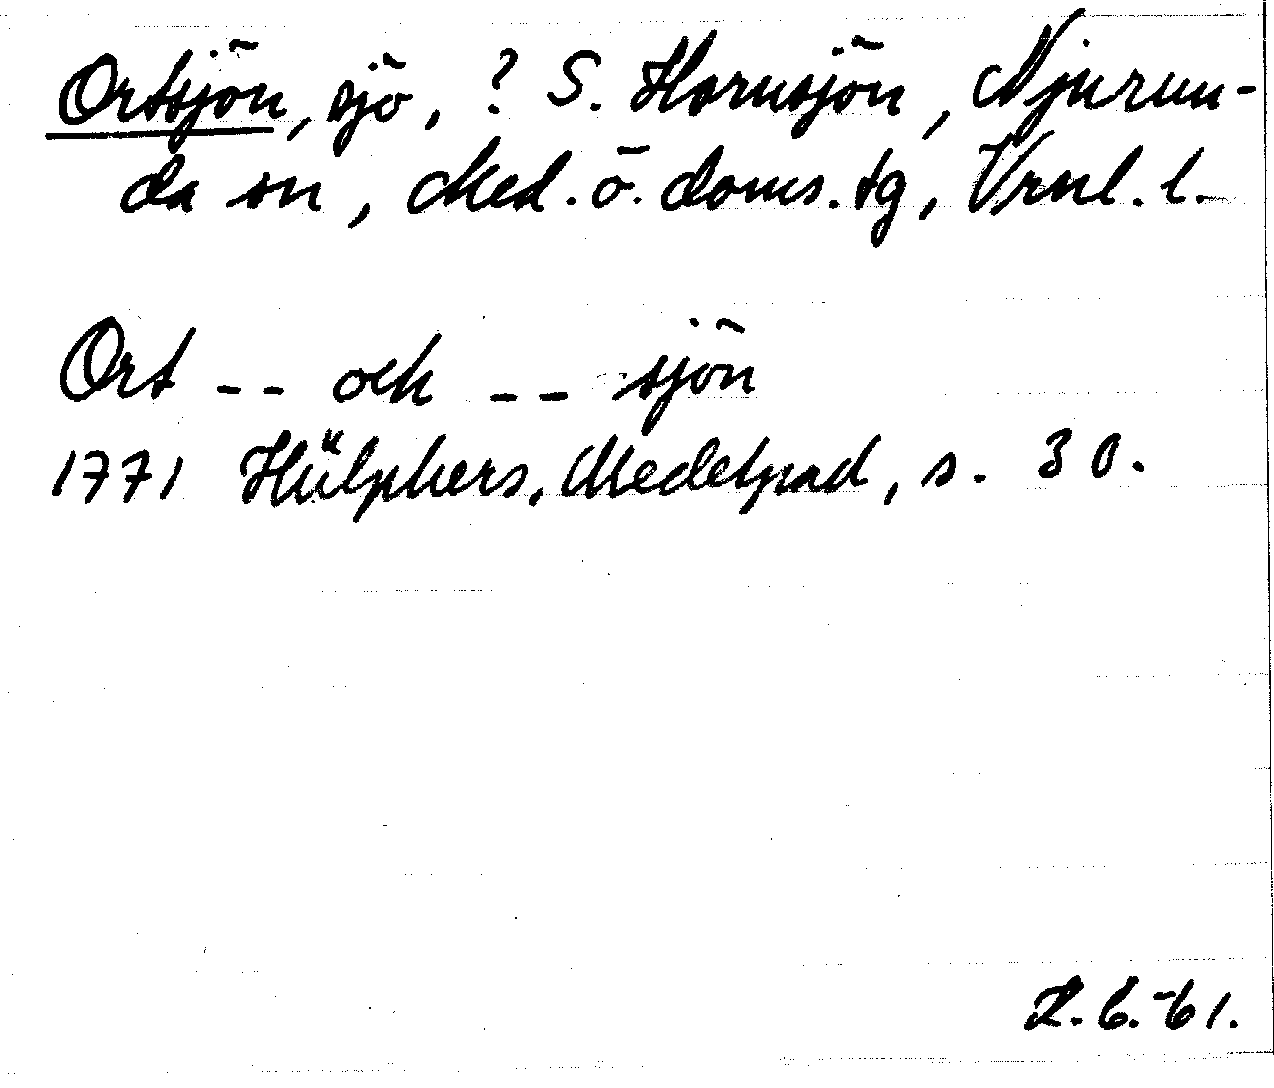 Ortsjön, sjö, ? S. Hornsjön, Njurun-
da sn, Med. ö. doms. tg, Vrnl. l.
Ort -- och -- sjön
1771 Hülphers, Medelpad, s. 30.
L. B. -61.